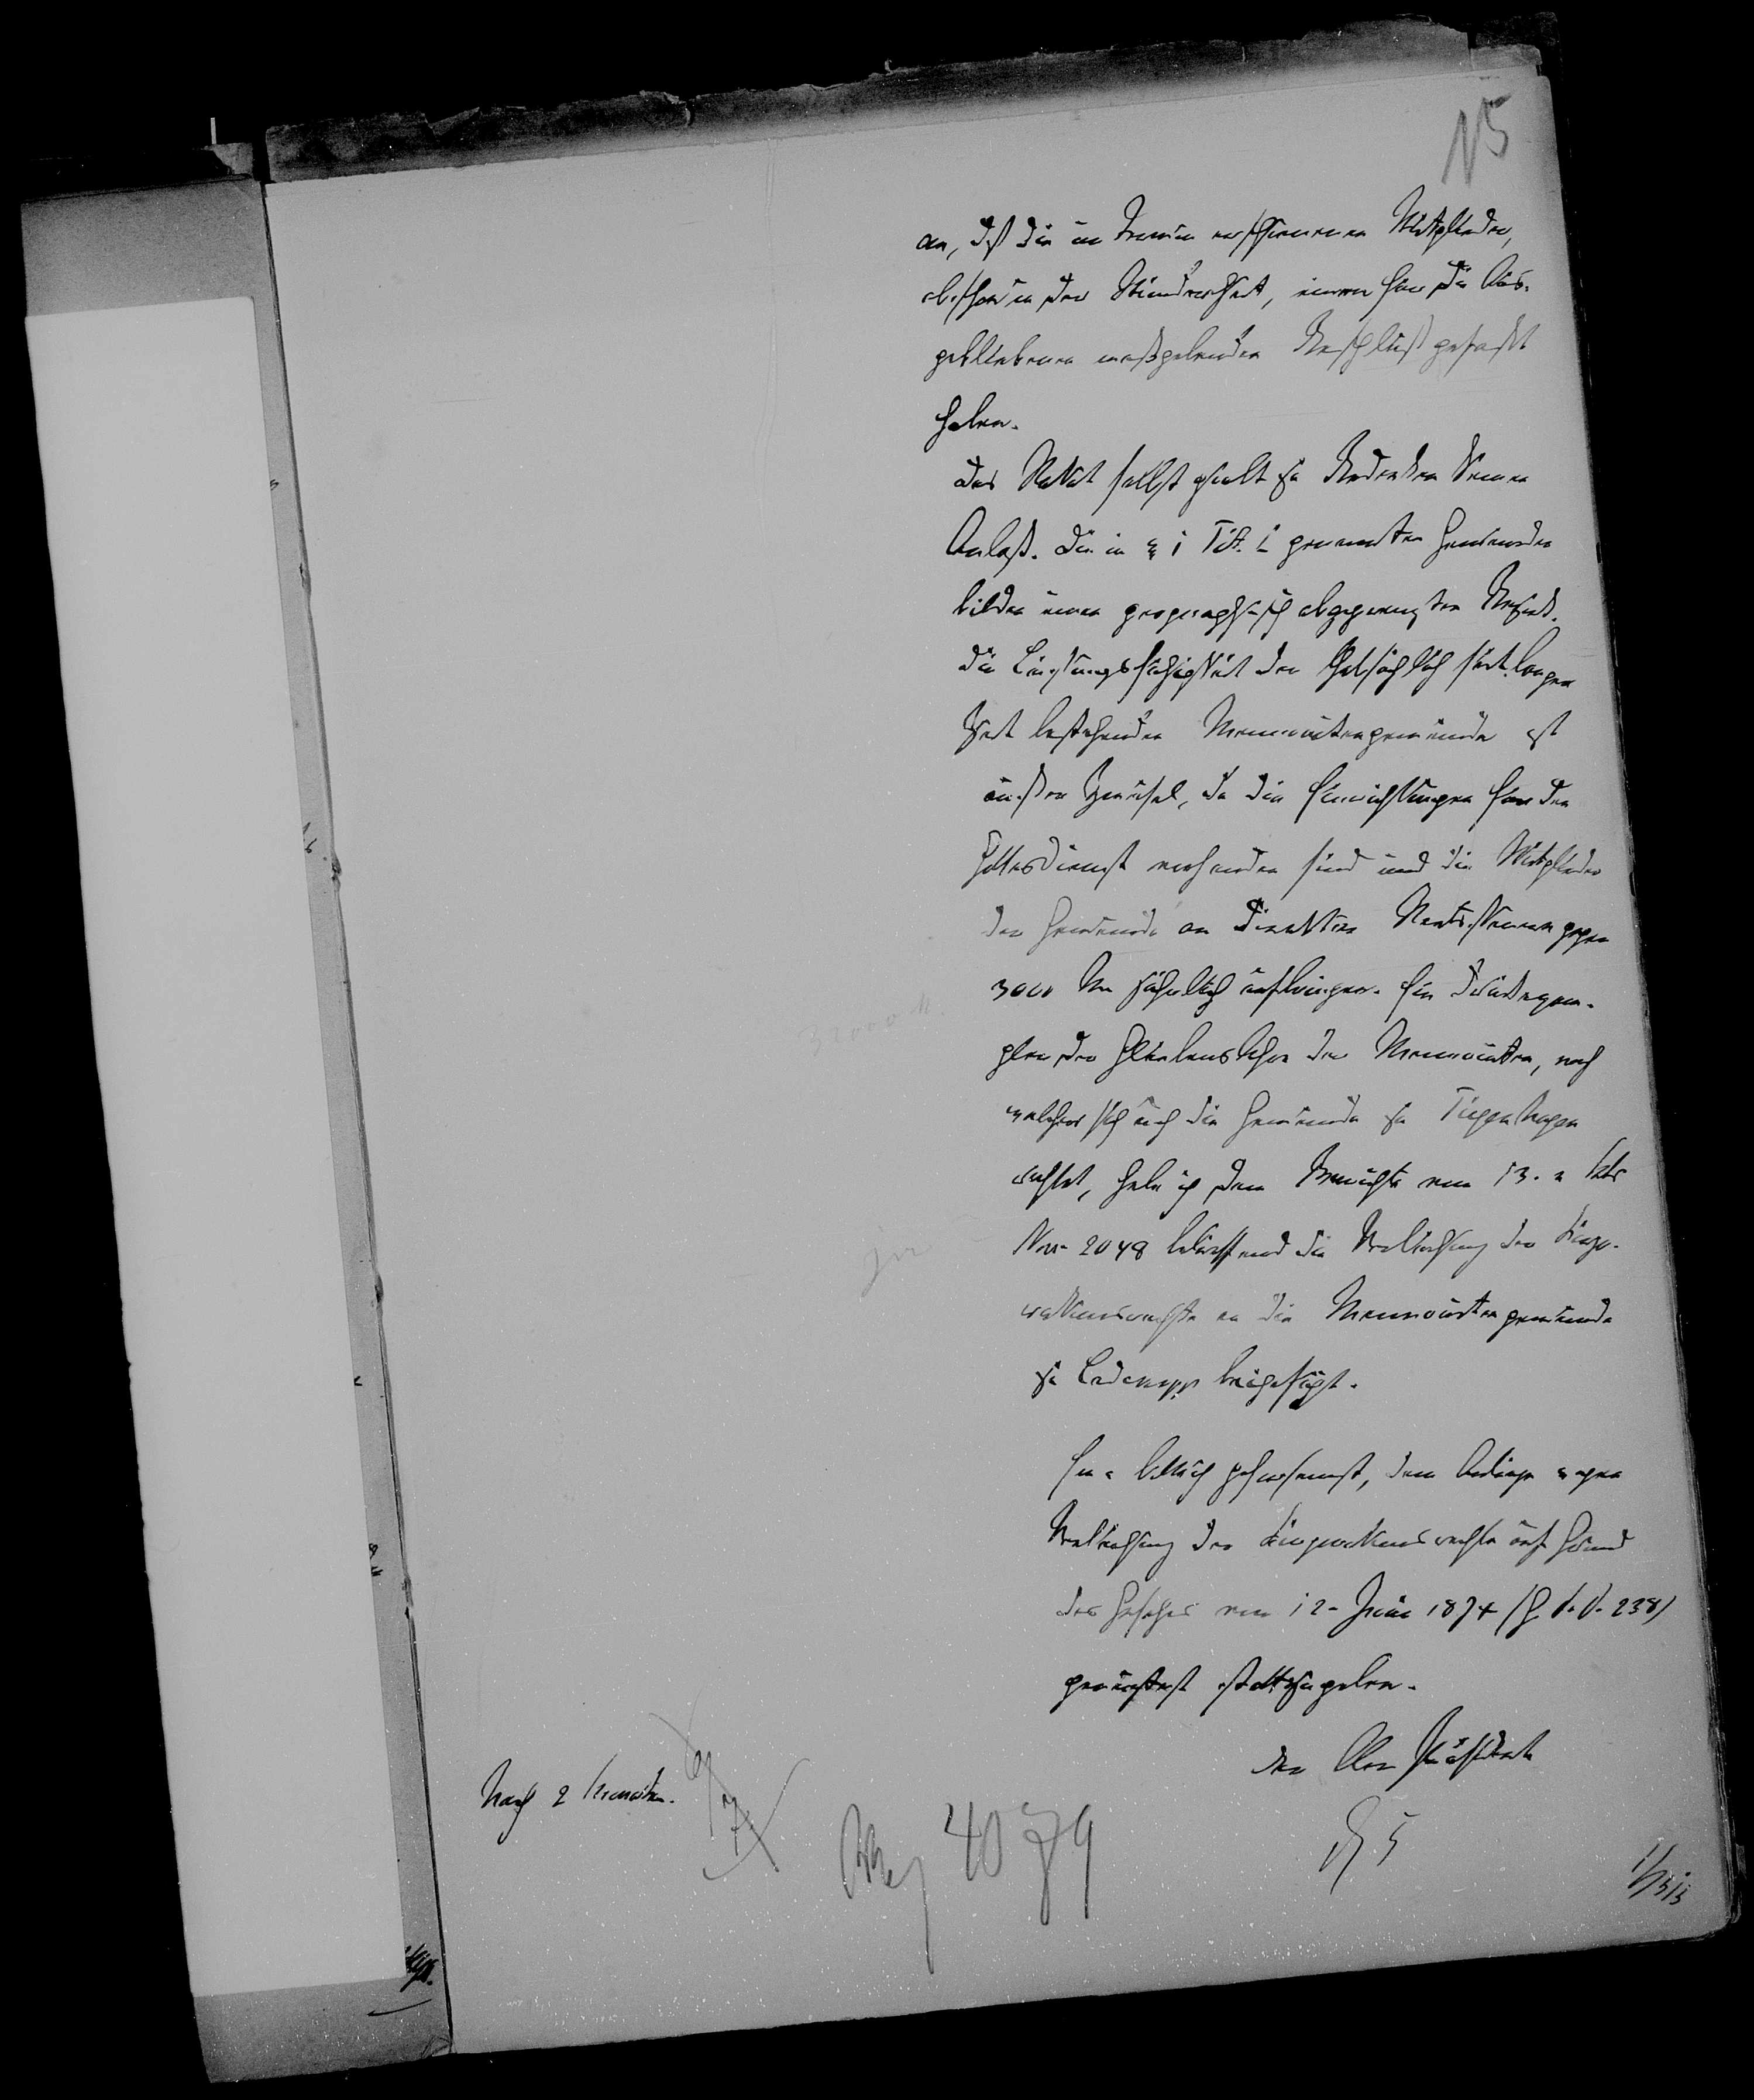 15
an, daß die im Termin erschienenen Mitglieder,
obschon in der Minderheit, einen für die Aus-
gebliebenen maßgebenden Beschluß gefaßt
haben.
Das Statut selbst giebt zu Bedenken keinen
Anlaß. Die in § 1 Tit. I genannten Gemeinden
bilden einen geographisch abgegrenzten Bezirk.
Die Leistungsfähigkeit der thatsächlich seit langer
Zeit bestehenden Mennonitengemeinde ist
außer Zweifel, da die Einrichtungen für den
Gottesdienst vorhanden sind und die Mitglieder
der Gemeinde an direkten Staatssteuern gegen
3000 M jährlich aufbringen. Ein Druckexem-
plar der Glaubenslehre der Mennoniten, nach
welcher sich auch die Gemeinde zu Tiegenhagen
richtet, habe ich dem Berichte vom 13.
Nro 2048 betreffend die Verleihung der Korpo-
rationsrechte an die Mennonitengemeinde
zu Ladekopp beigefügt.
Ew. bitte ich gehorsamst, dem Antrage wegen
Verleihung der Korporationsrechte auf Grund
des Gesetzes vom 12. Juni 1874 (G. S. S. 238)
geneigtest stattzugeben.
Der Ober Präsident
Nach 2 Monaten.
4079